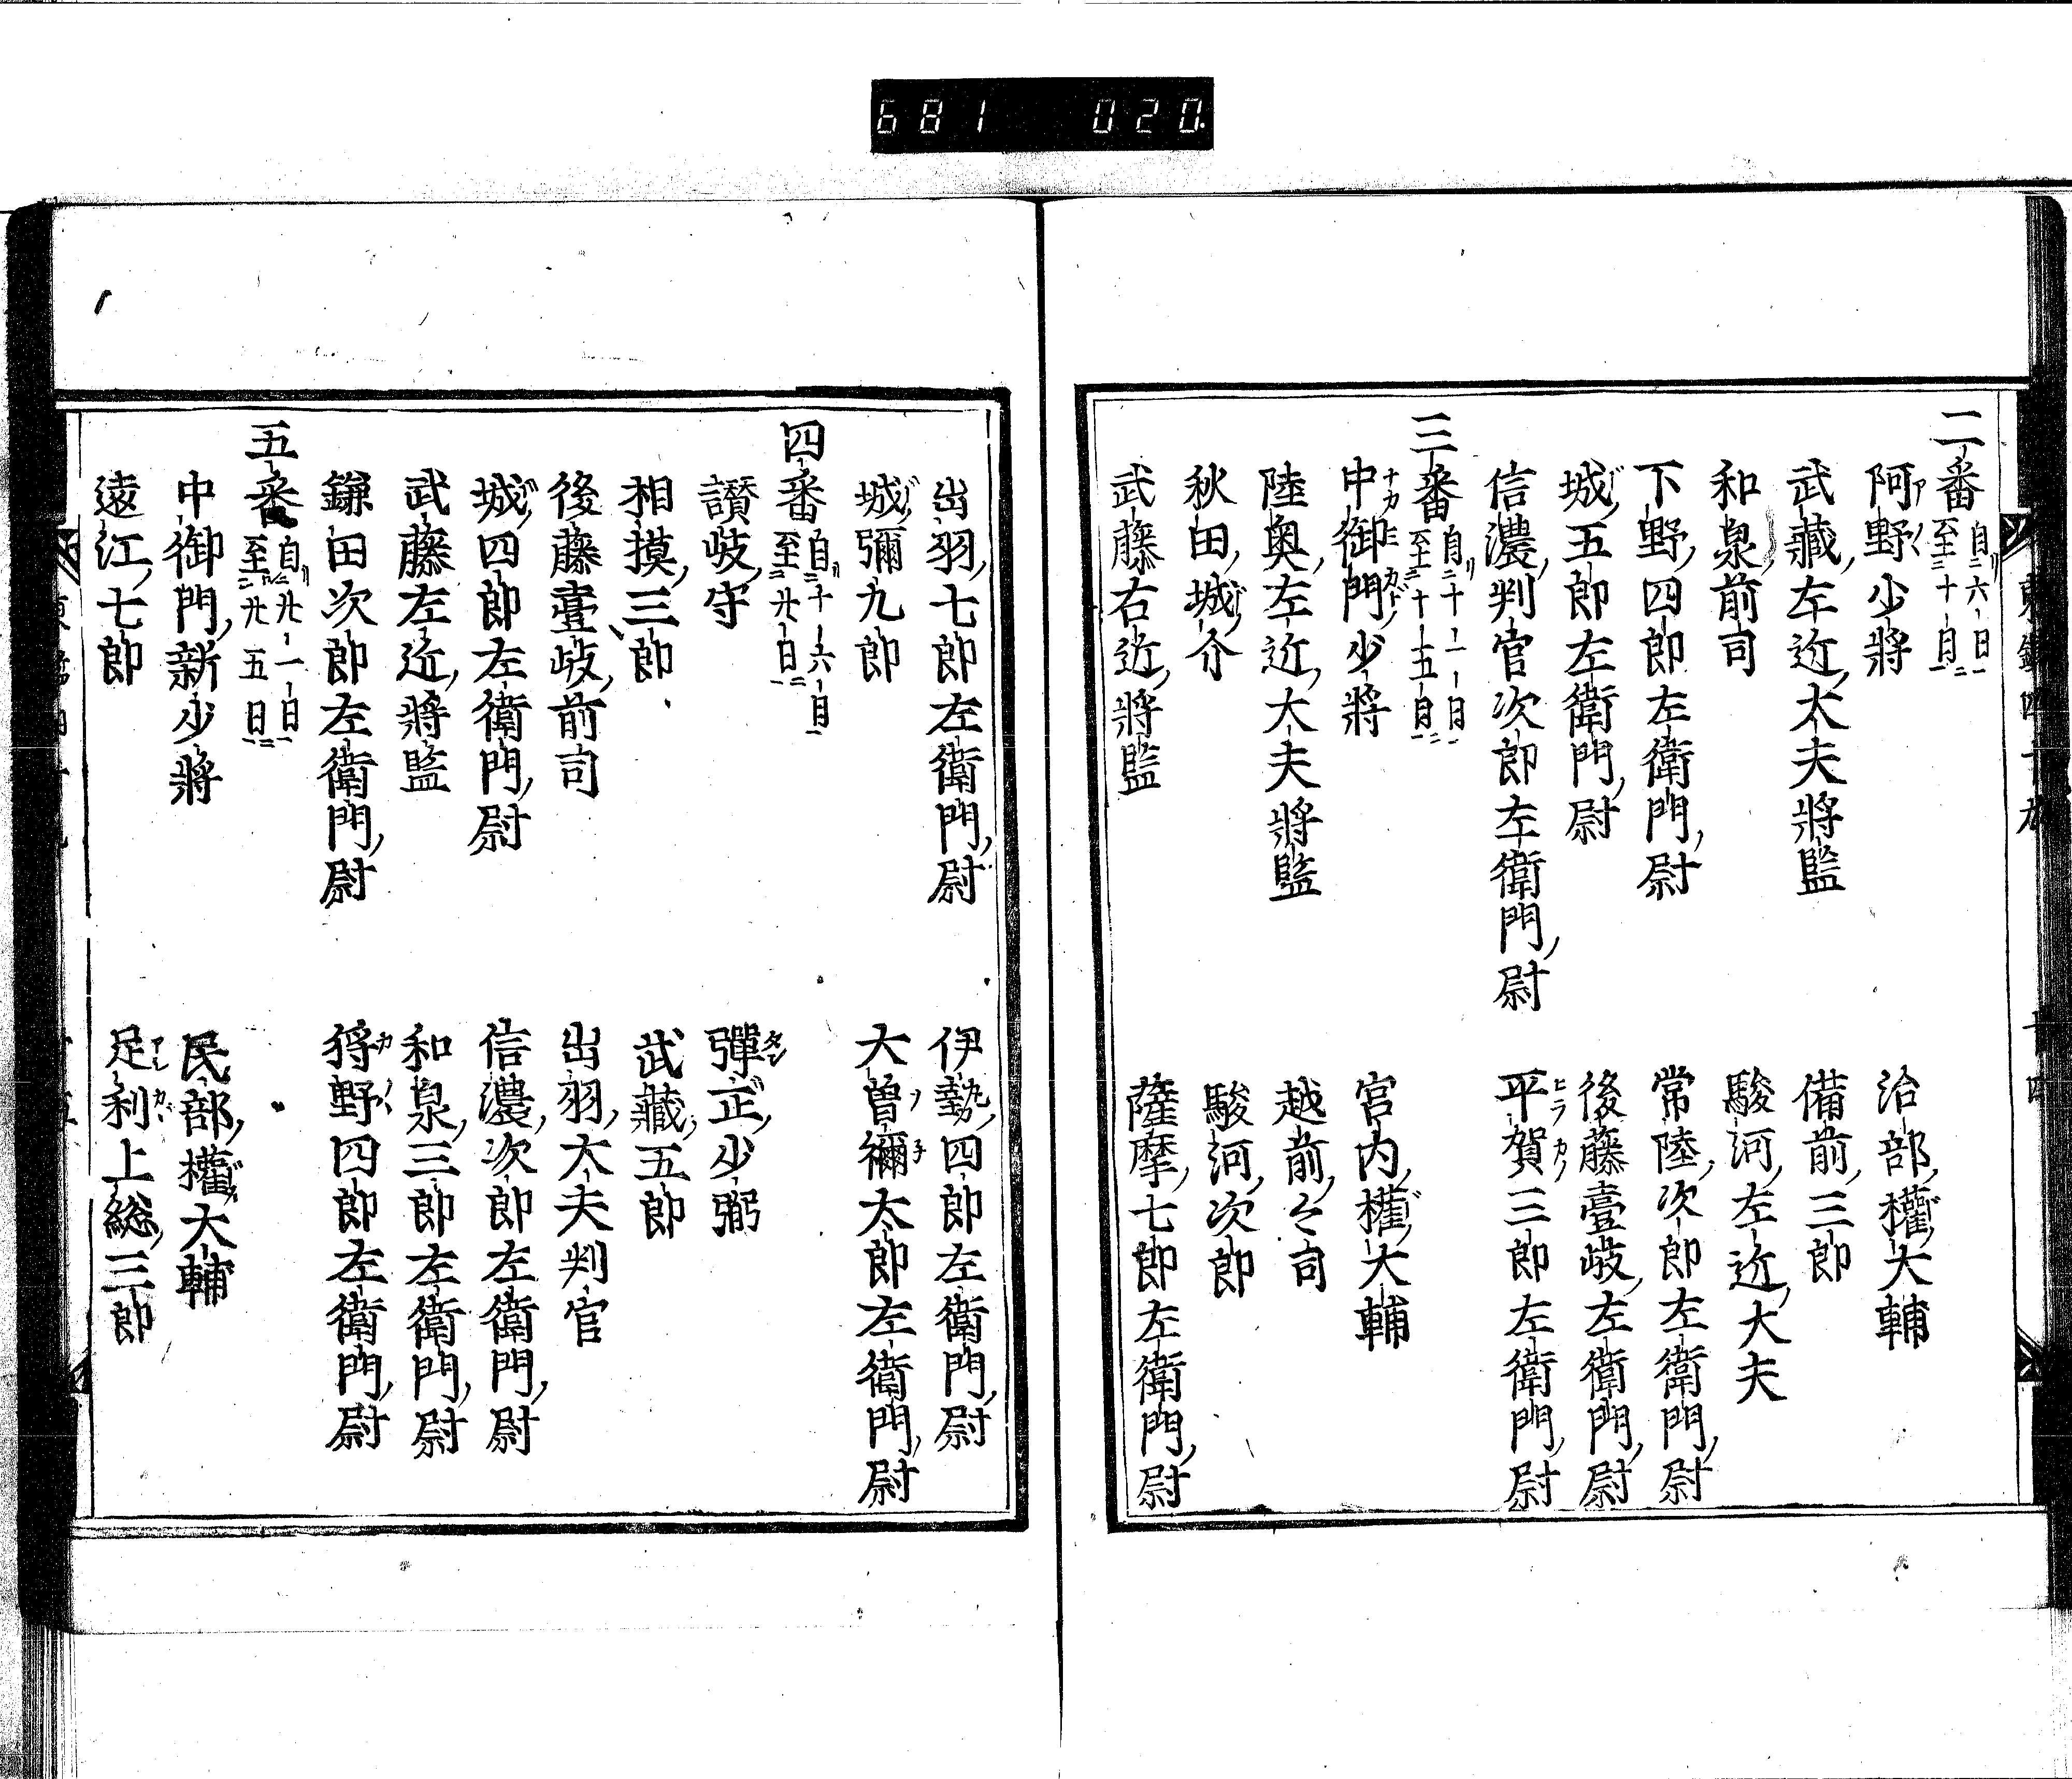 681 020
二番 自六日 至十日
阿野少將 治部權大輔
武藏左近大夫將監 備前三郎
和泉前司 駿河左近大夫
下野四郎左衛門尉 常陸次郎左衛門尉
城五郎左衛門尉 後藤壹岐左衛門尉
信濃判官次郎左衛門尉 平賀三郎左衛門尉
三番 自十一日 至十五日
中御門少將 宮内權大輔
陸奥左近大夫將監 越前々司
秋田城介 駿河次郎
武藤右近將監 薩摩七郎左衛門尉
出羽七郎左衛門尉 伊勢四郎左衛門尉
城彌九郎 大曽禰太郎左衛門尉
四番 自十六日 至廿日
讃岐守 彈正少弼
相摸三郎 武藏五郎
後藤壹岐前司 出羽大夫判官
城四郎左衛門尉 信濃次郎左衛門尉
武藤左近將監 和泉三郎左衛門尉
鎌田次郎左衛門尉 狩野四郎左衛門尉
五番 自廿一日 至廿五日
中御門新少將 民部權大輔
遠江七郎 足利上総三郎